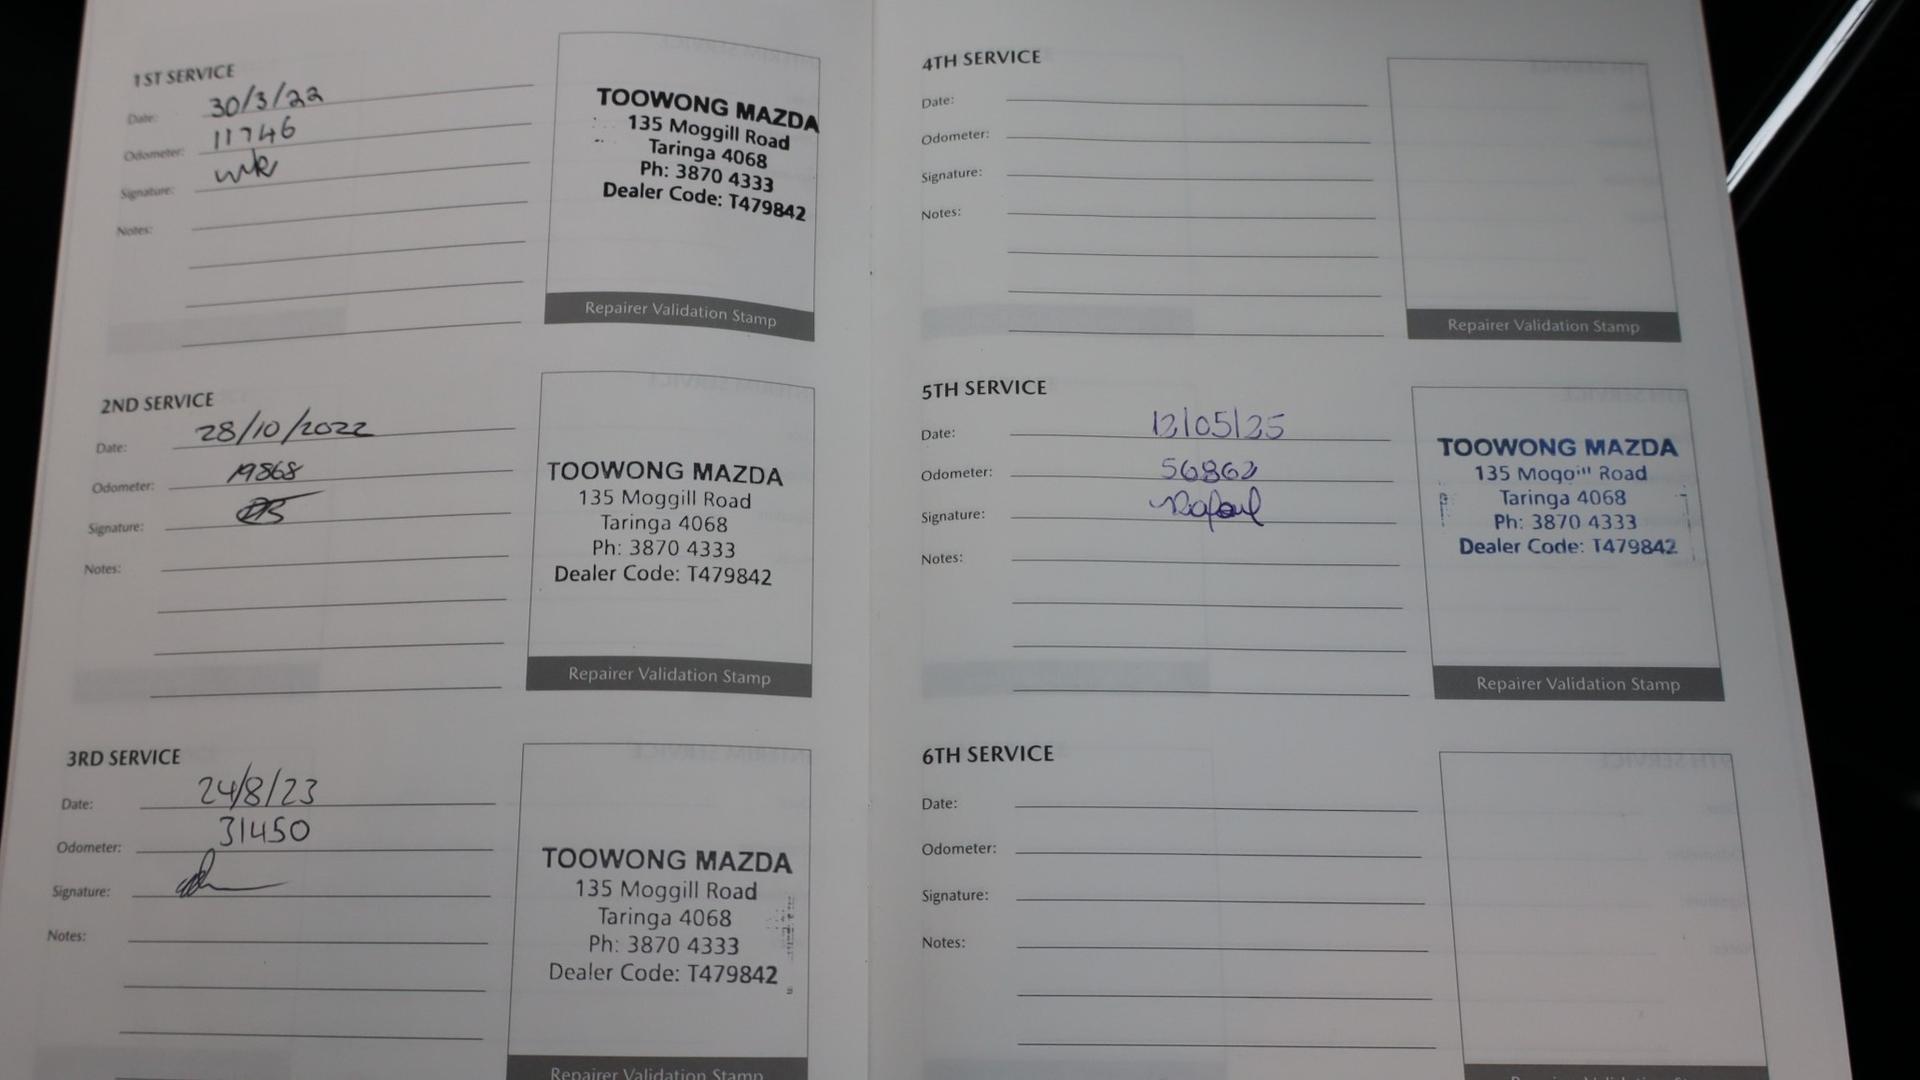 1ST SERVICE
Date: 30/3/22
Odometer: 11746
Signature:
Notes:
TOOWONG MAZDA
135 Moggill Road
Taringa 4068
Ph: 3870 4333
Dealer Code: T479842
Repairer Validation Stamp
2ND SERVICE
Date: 28/10/2022
Odometer: 19868
Signature:
Notes:
TOOWONG MAZDA
135 Moggill Road
Taringa 4068
Ph: 3870 4333
Dealer Code: T479842
Repairer Validation Stamp
3RD SERVICE
Date: 24/8/23
Odometer: 31450
Signature:
Notes:
TOOWONG MAZDA
135 Moggill Road
Taringa 4068
Ph: 3870 4333
Dealer Code: T479842
Repairer Validation Stamp
4TH SERVICE
Date:
Odometer:
Signature:
Notes:
Repairer Validation Stamp
5TH SERVICE
Date: 12/05/25
Odometer: 56862
Signature: Rafael
Notes:
TOOWONG MAZDA
135 Moggill Road
Taringa 4068
Ph: 3870 4333
Dealer Code: T479842
Repairer Validation Stamp
6TH SERVICE
Date:
Odometer:
Signature:
Notes:
Repairer Validation Stamp